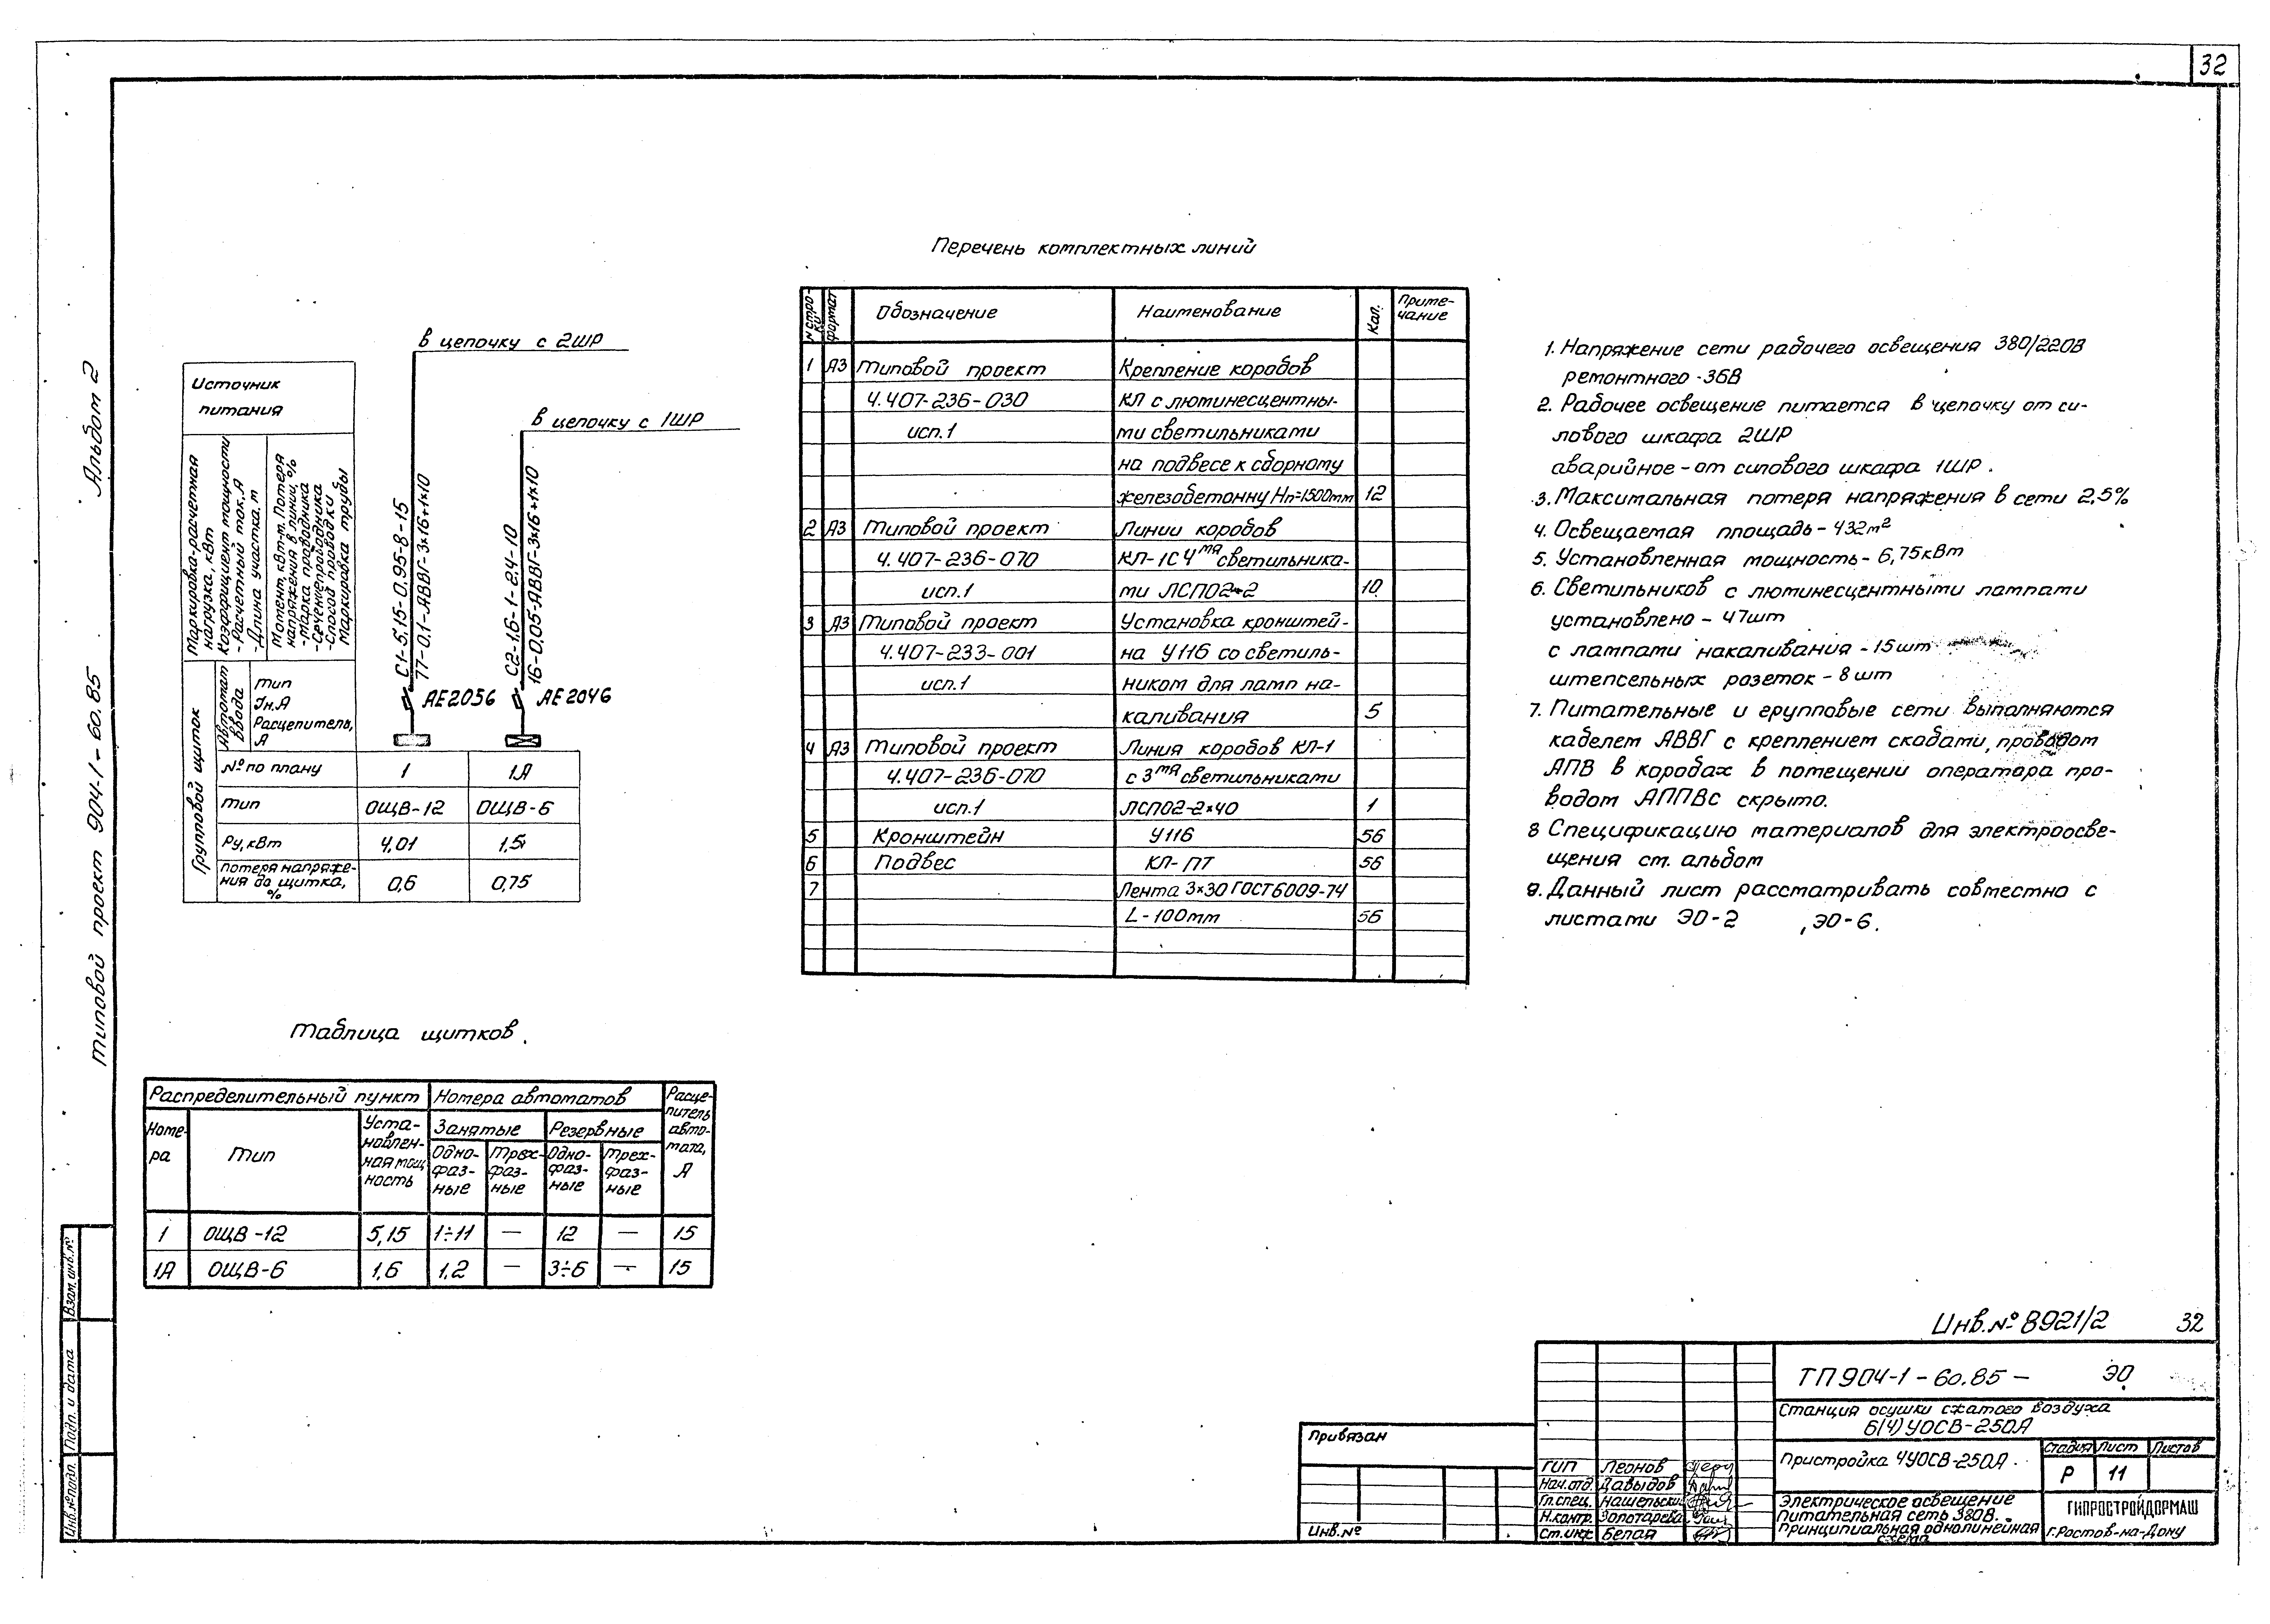 32
Альбом 2
типовой проект 904-1-60.85
в цепочку с 2ШР
в цепочку с 1ШР
Источник
питания
Маркировка-расчетная
нагрузка, кВт
Коэффициент мощности
-Расчетный ток, А
-Длина участка, м
Момент, кВт·м. Потеря
напряжения в линии, %
-Марка проводника
-Сечение проводника
-Способ проводки
Маркировка трубы
С1-5,15-0,95-8-15
77-0,1-АВВГ-3×16+1×10
С2-1,6-1-2,4-10
16-0,05-АВВГ-3×16+1×10
АЕ2056
АЕ2046
Групповой щиток
Автомат
ввода
Тип
Iн.А
Расцепитель,
А
№ по плану 1 1А
Тип ОЩВ-12 ОЩВ-6
Ру, кВт 4,01 1,5
Потеря напряже-
ния до щитка, 0,6 0,75
%
Перечень комплектных линий
№ стро-
ки
Формат
Обозначение
Наименование
Кол.
Приме-
чание
1 А3 Типовой проект Крепление коробов
4.407-236-030 КЛ с люминесцентны-
исп.1 ми светильниками
на подвесе к сборному
железобетонну Нп=1500мм 12
2 А3 Типовой проект Линии коробов
4.407-236-070 КЛ-1С 4мя светильника-
исп.1 ми ЛСП02-2 10
3 А3 Типовой проект Установка кронштей-
4.407-233-001 на У116 со светиль-
исп.1 ником для ламп на-
каливания 5
4 А3 Типовой проект Линия коробов КЛ-1
4.407-236-070 с 3мя светильниками
исп.1 ЛСП02-2×40 1
5 Кронштейн У116 56
6 Подвес КЛ-ПТ 56
7 Лента 3×30 ГОСТ6009-74
L-100мм 56
1. Напряжение сети рабочего освещения 380/220В
ремонтного -36В
2. Рабочее освещение питается в цепочку от си-
лового шкафа 2ШР
аварийное - от силового шкафа 1ШР.
3. Максимальная потеря напряжения в сети 2,5%
4. Освещаемая площадь - 432м²
5. Установленная мощность - 6,75кВт
6. Светильников с люминесцентными лампами
установлено - 47шт
с лампами накаливания - 15шт
штепсельных розеток - 8 шт
7. Питательные и групповые сети выполняются
кабелем АВВГ с креплением скобами, проводом
АПВ в коробах в помещении оператора про-
водом АППВС скрыто.
8 Спецификацию материалов для электроосве-
щения см. альбом
9. Данный лист рассматривать совместно с
листами ЭО-2 , ЭО-6.
Таблица щитков.
Распределительный пункт Номера автоматов Расце-
питель
авто-
мата,
А
Номе-
ра
Тип
Уста-
новлен-
ная мощ
ность
Занятые Резервные
Одно-
фаз-
ные
Трех-
фаз-
ные
Одно-
фаз-
ные
Трех-
фаз-
ные
1 ОЩВ-12 5,15 1÷11 — 12 — 15
1А ОЩВ-6 1,6 1,2 — 3÷6 — 15
Взам. инв. №
Подп. и дата
Инв. № подл.
Инв. № 8921/2 32
ТП 904-1-60.85- ЭО
Станция осушки сжатого воздуха
6(4)УОСВ-250А
Пристройка 4УОСВ-250А.
Стадия Лист Листов
Р 11
Электрическое освещение
Питательная сеть 380В.
Принципиальная однолинейная
схема
ГИПРОСТРОЙДОРМАШ
г. Ростов-на-Дону
Привязан
Инв. №
ГИП Леонов
Нач. отд. Давыдов
Гл. спец. Нашельский
Н. контр. Золотарева
Ст. инж. Белая